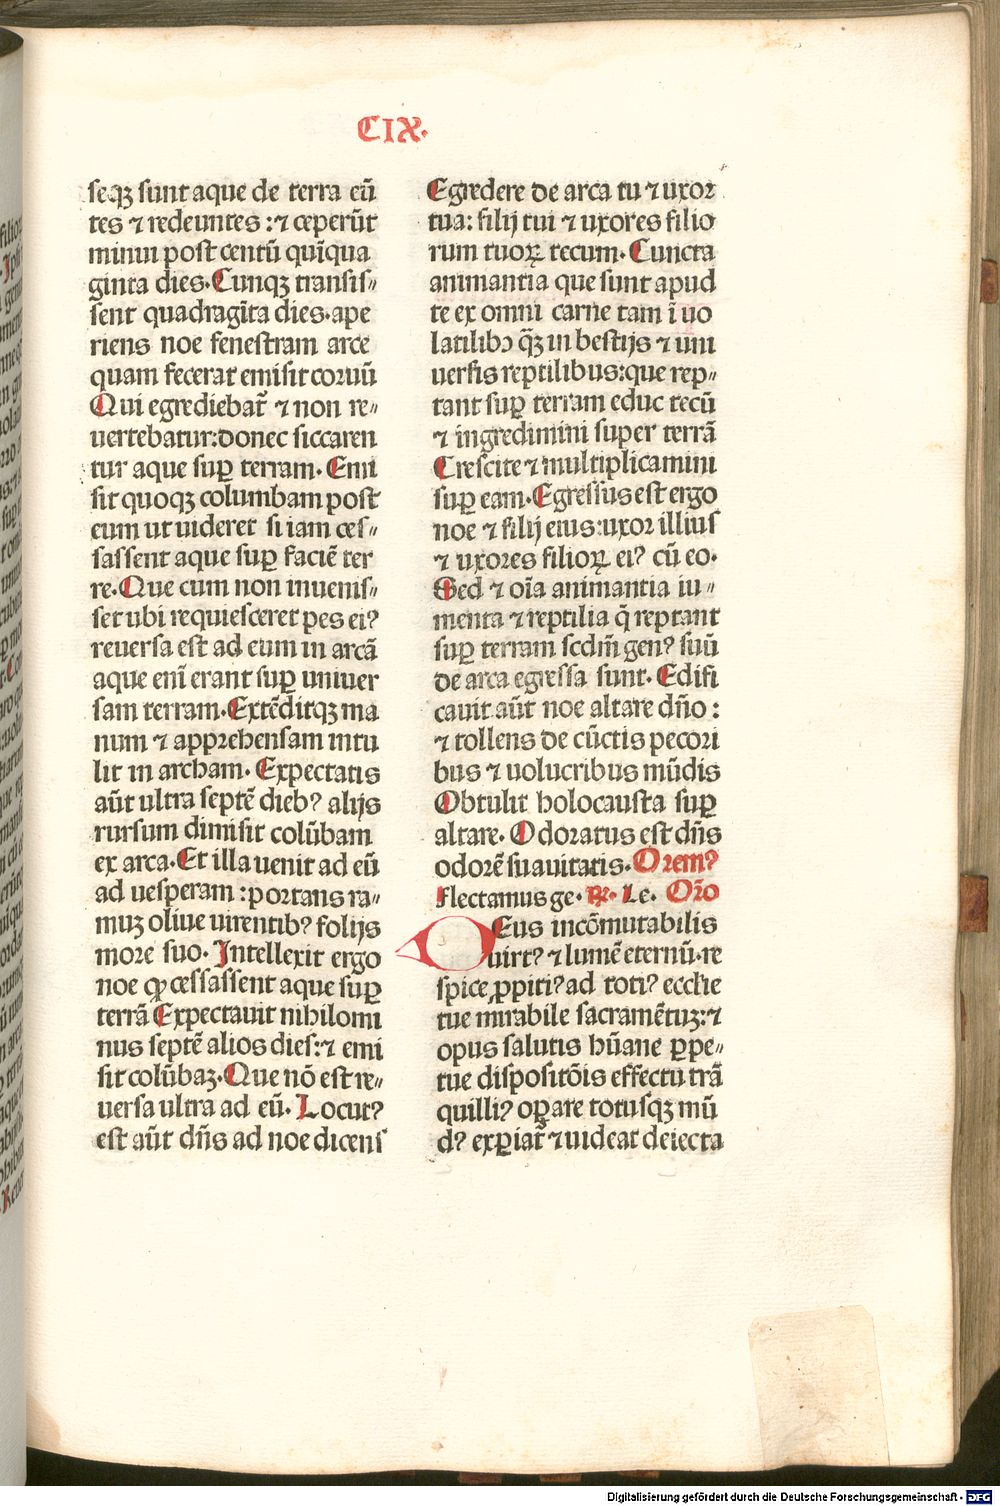 CIX.
seqꝫ sunt aque de terra eū
tes ⁊ redeuntes :⁊ ceperūt
minui post centū quīqua
ginta dies. Cunqꝫ transis⸗
sent quadragīta dies. ape
riens noe fenestram arce
quam fecerat emisit coruū
Qui egrediebat̄ ⁊ non re⸗
uertebatur: donec siccaren
tur aque suꝑ terram. Emi
sit quoqꝫ columbam post
eum ut uideret si iam ces⸗
sassent aque suꝑ faciē ter
re. Que cum non inuenis⸗
set ubi requiesceret pes ei?
reuersa est ad eum in arcā
aque enī erant suꝑ uniuer
sam terram. Extēditqꝫ ma
num ⁊ apprehensam intu
lit in archam. Expectatis
aūt ultra septē dieb? alijs
rursum dimisit colūbam
ex arca. Et illa uenit ad eū
ad uesperam : portans ra⸗
muꝫ oliue uirentib? folijs
more suo. Intellexit ergo
noe ꝙ cessassent aque suꝑ
terrā Expectauit nihilomi
nus septē alios dies:⁊ emi
sit colūbaꝫ. Que nō est re⸗
uersa ultra ad eū. Locut?
est aūt dn̄s ad noe dicens
Egredere de arca tu ⁊ uxor
tua: filij tui ⁊ uxores filio
rum tuoꝝ tecum. Cuncta
animantia que sunt apud
te ex omni carne tam ī uo
latilibꝰ q̄ꝫ in bestijs ⁊ uni
uersis reptilibus: que rep⸗
tant suꝑ terram educ tecū
⁊ ingredimini super terrā
Crescite ⁊ multiplicamini
suꝑ eam. Egressus est ergo
noe ⁊ filij eius: uxor illius
⁊ uxores filioꝝ ei? cū eo.
Sed ⁊ oīa animantia iu⸗
menta ⁊ reptilia q̄ reptant
suꝑ terram scdm̄ gen? suū
de arca egressa sunt. Edifi
cauit aūt noe altare dn̄o :
⁊ tollens de cūctis pecori
bus ⁊ uolucribus mūdis
Obtulit holocausta suꝑ
altare. Odoratus est dn̄s
odorē suauitatis. Orem?
Flectamus ge. ꝶ. Le. Or̄o
DEus incōmutabilis
uirt? ⁊ lumē eternū. re
spice ꝓpiti? ad toti? eccl̄ie
tue mirabile sacramētuꝫ:⁊
opus salutis hūane ꝑpe⸗
tue dispositōis effectu trā
quilli? oꝑare totusqꝫ mū
d? exꝑiat̄ ⁊ uideat deiecta
Digitalisierung gefördert durch die Deutsche Forschungsgemeinschaft - DFG